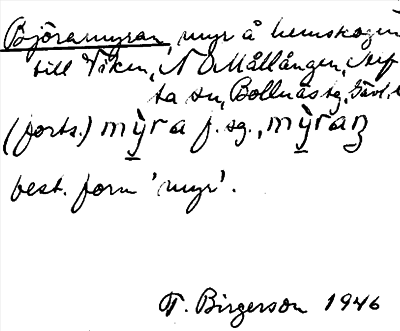 Björamyran, myr å hemskogen
till Viken, N Mållången, Alf
ta sn, Bollnäs tg, Gävl. l
(forts.) mỳra f. sg., mỳraṇ
best. form 'myr'.
T. Birgerson 1946